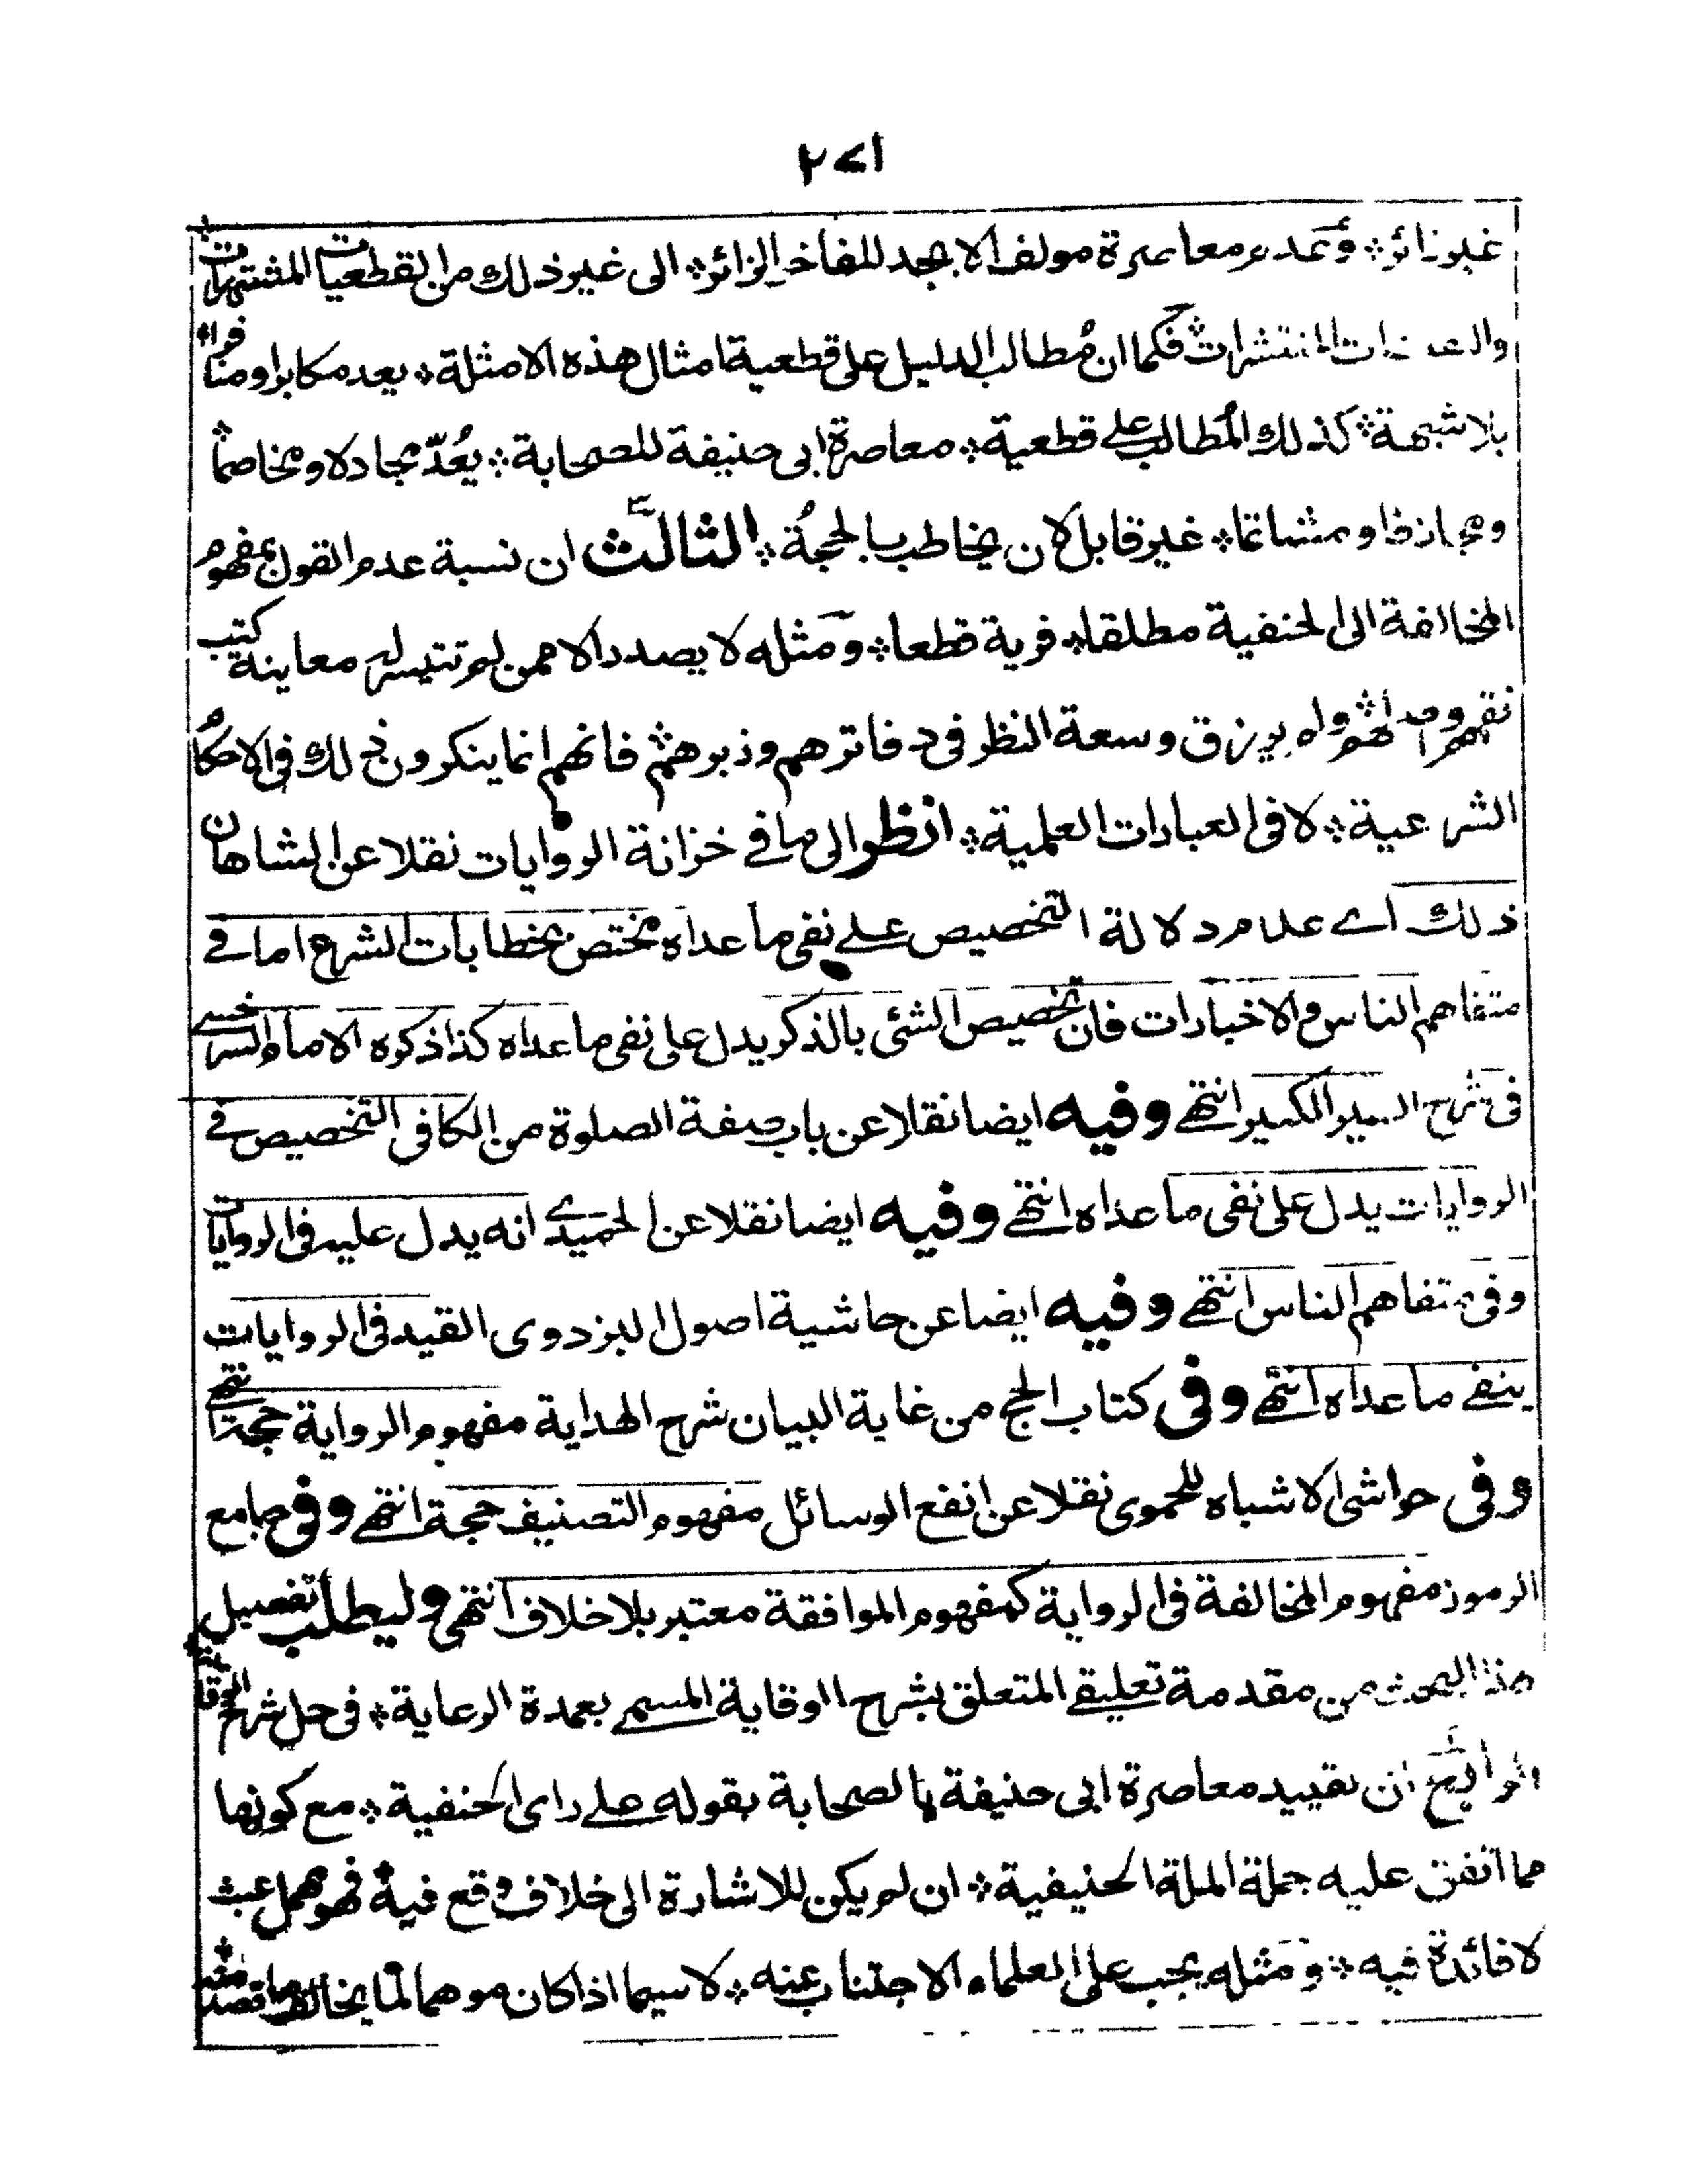 ٢٧١
غير زائر ۞ وعدم معاصرة مولف الابجد للفاخر الزائر ۞ الى غير ذلك من القطعيات المشتهرات
المنتشرات ۞ فكما ان مطالب الدليل على قطعية امثال هذه الامثلة ۞ يعد مكابرا ومنافرا
بلا شبهة ۞ كذلك المُطالب على قطعية ۞ معاصرة ابى حنيفة للصحابة ۞ يُعَدّ مجادلا ومخاصما
ومجازفا ومشاتما ۞ غير قابل لان يخاطب بالحجة ۞ الثالث ان نسبة عدم القول بمفهوم
المخالفة الى الحنفية مطلقا ۞ فرية قطعا ۞ ومثله لا يصدر الا ممن لم تتيسر له معاينة كتب
ولم يرزق وسعة النظر فى دفاترهم وزبرهم ۞ فانهم انما ينكرون ذلك فى الاحكام
الشرعية ۞ لا فى العبارات العلمية ۞ انظر الى ما فے خزانة الروايات نقلا عن الشاهان
ذلك اے عدم دلالة التخصيص علے نفى ما عداه مختص بخطابات الشرع اما فے
متفاهم الناس والاخبارات فان تخصيص الشئ بالذكر يدل على نفى ما عداه كذا ذكره الامام السرخسے
فى شرح السير الكبير انتهے وفيه ايضا نقلا عن باب صفة الصلوة من الكافى التخصيص فے
الروايات يدل على نفى ما عداه انتهے وفيه ايضا نقلا عن الحميدے انه يدل عليه فى الروايات
وفى متفاهم الناس انتهے وفيه ايضا عن حاشية اصول البزدوى القيد فى الروايات
ينفے ما عداه انتهے وفى كتاب الحج من غاية البيان شرح الهداية مفهوم الرواية حجة انتهے
وفى حواشى الاشباه للحموى نقلا عن انفع الوسائل مفهوم التصنيف حجة انتهے وفى جامع
الرموز مفهوم المخالفة فى الرواية كمفهوم الموافقة معتبر بلا خلاف انتهى وليطلب تفصيل
هذا البحث من مقدمة تعليقے المتعلق بشرح الوقاية المسمے بعمدة الرعاية ۞ فى حل شرح الوقاية
الرابع ان تقييد معاصرة ابى حنيفة بالصحابة بقوله علے راى الحنفية ۞ مع كونها
مما اتفق عليه جملة الملة الحنيفية ۞ ان لم يكن للاشارة الى خلاف وقع فيه ۞ فهو مهمل عبث
لا فائدة فيه ۞ ومثله يجب على العلماء الاجتناب عنه ۞ لا سيما اذا كان موهما لما يخالف ما قصد منه